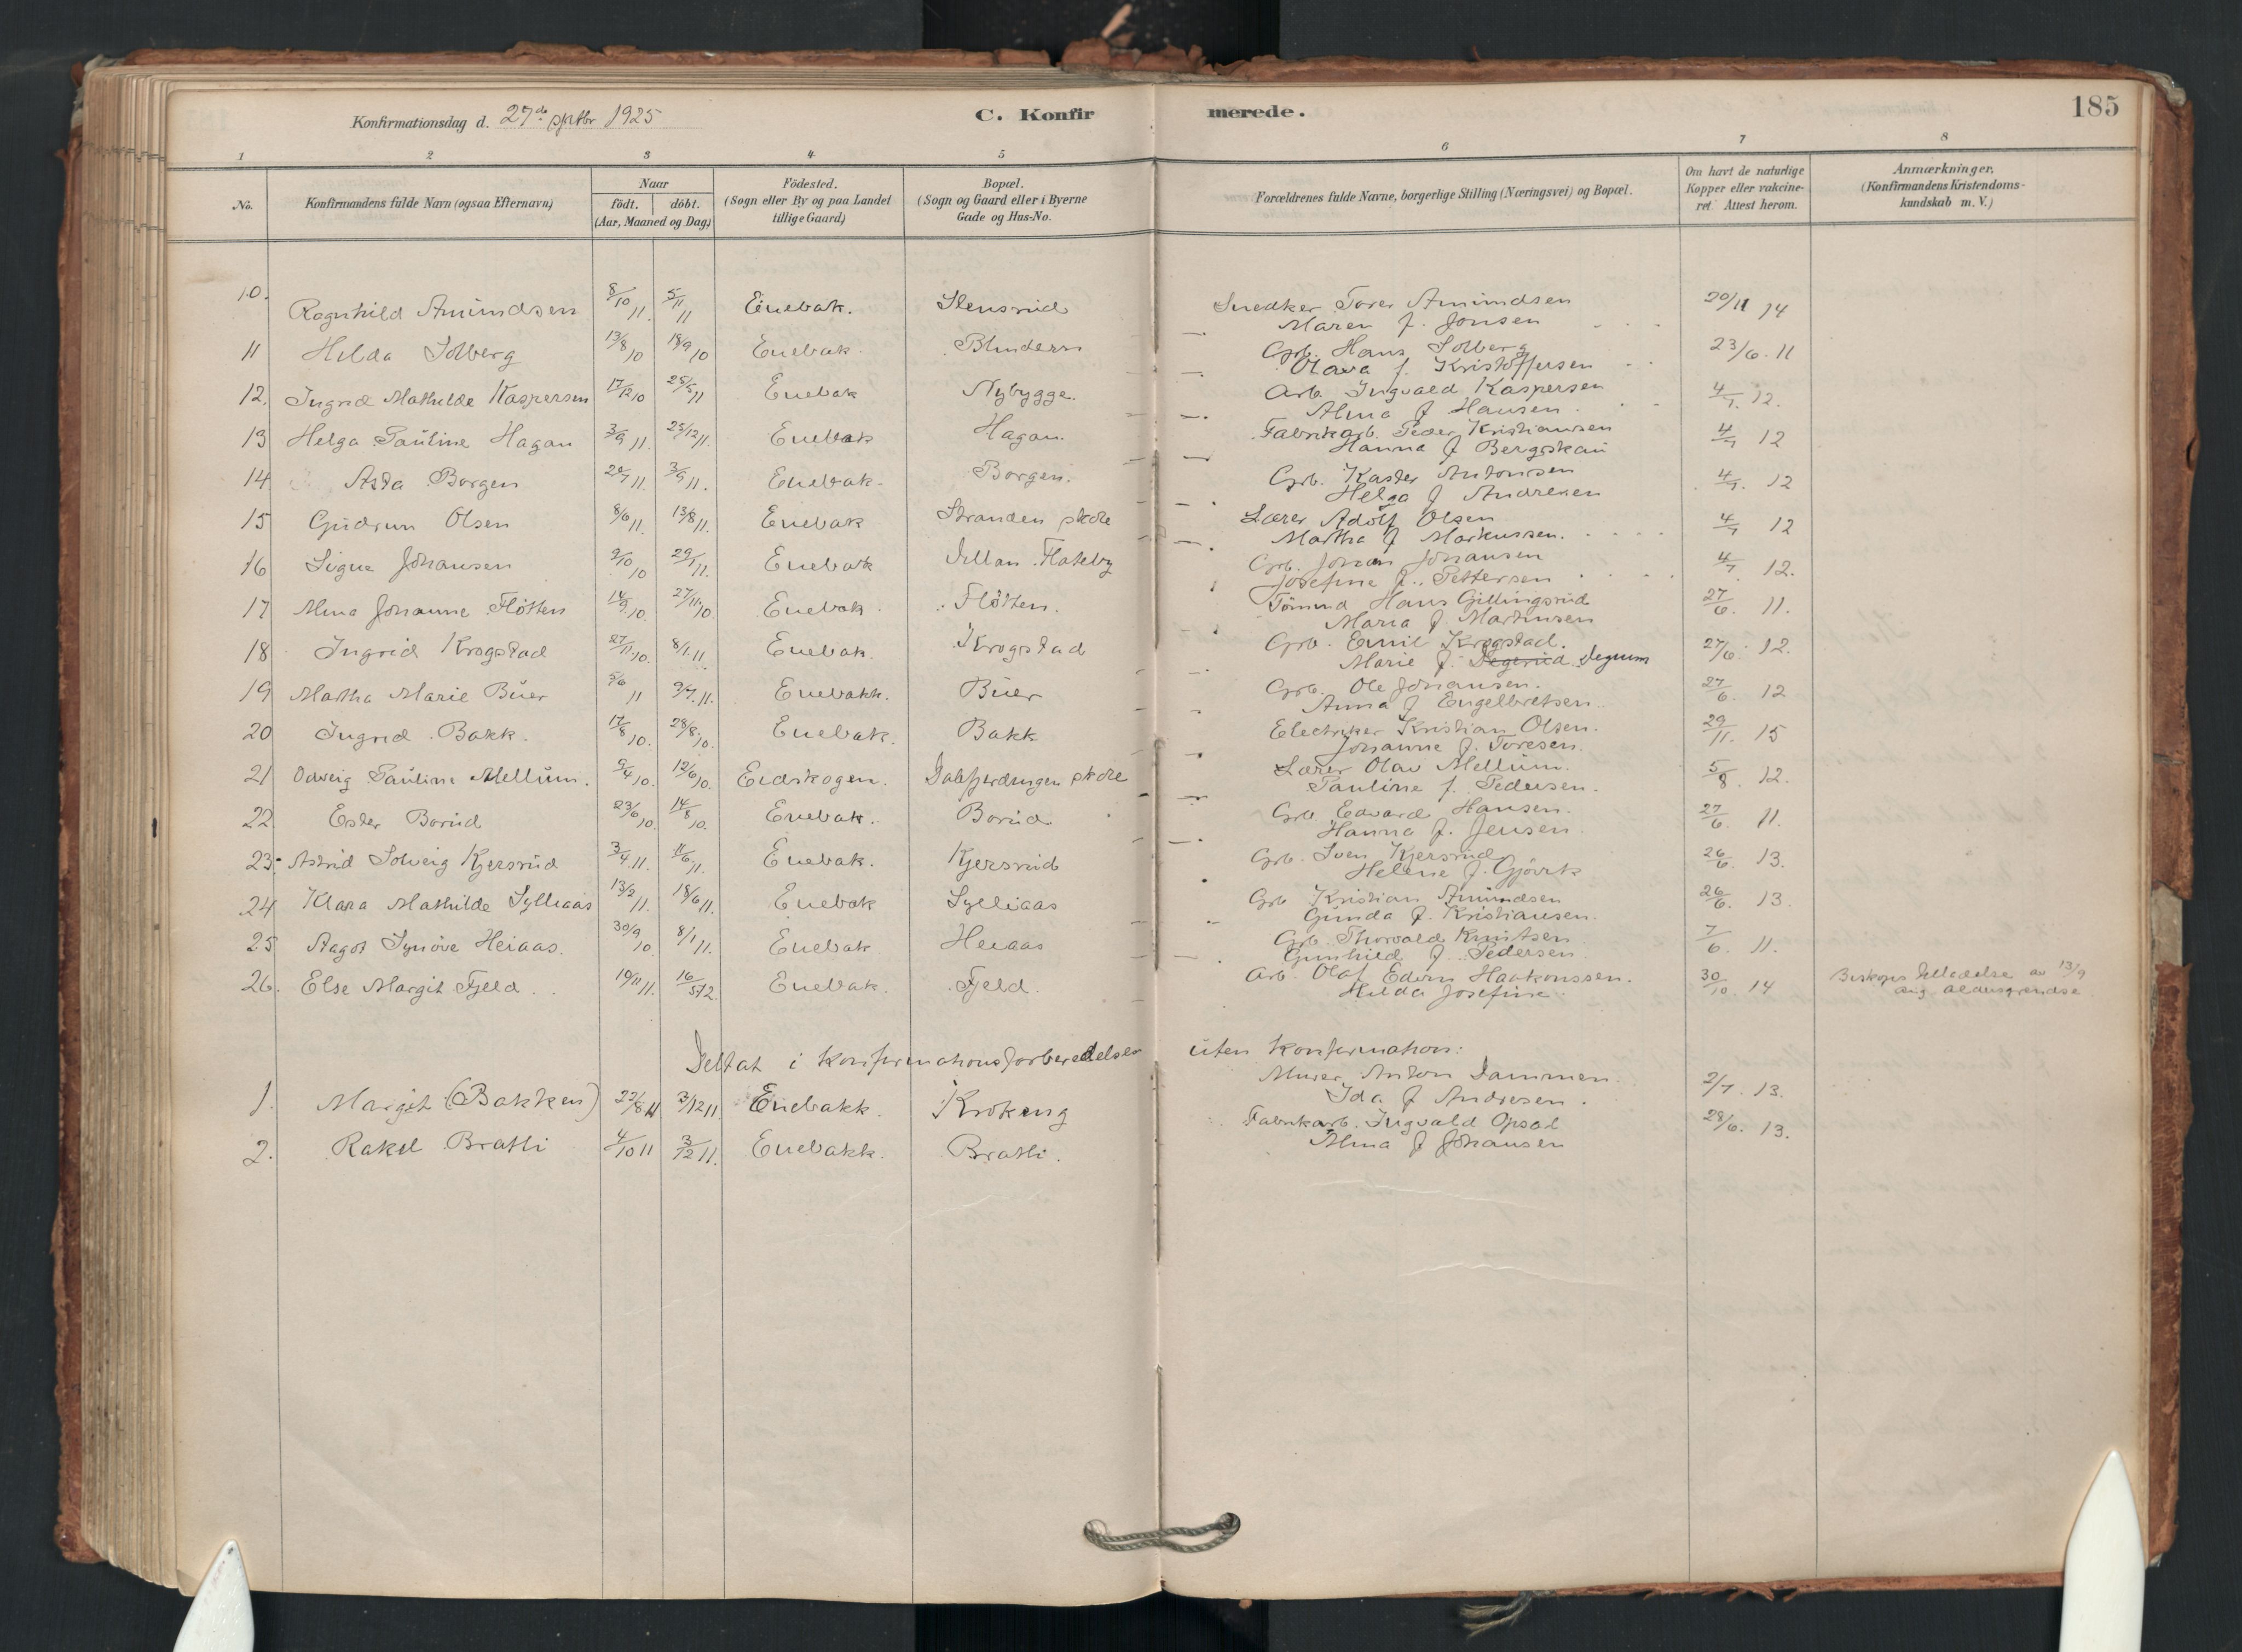 Konfirmationsdag d. 27de septbr 1925
C. Konfirmerede.
185
1 2 3 4 5 6 7 8
No.
Konfirmandens fulde Navn (ogsaa Efternavn)
Naar
födt. döbt.
(Aar, Maaned og Dag)
Födested.
(Sogn eller By og paa Landet
tillige Gaard)
Bopæl.
(Sogn og Gaard eller i Byerne
Gade og Hus-No.
Forældrenes fulde Navne, borgerlige Stilling (Næringsvei) og Bopæl.
Om havt de naturlige
Kopper eller vakcine-
ret. Attest herom.
Anmærkninger,
(Konfirmandens Kristendoms-
kundskab m. V.)
10. Ragnhild Amundsen 8/10 11. 5/11 11 Enebak. Stensrud Snedker Torer Amundsen 20/11 14
Maren f. Jonsen
11 Hilda Solberg 13/8 10 18/9 10 Enebak Grb. Hans Solberg 23/6. 11
Olava f. Kristoffersen
12. Ingrid Mathilde Kaspersen 17/12 10 25/5 11 Enebak Nybygge. Arb. Ingvald Kaspersen 4/7. 12.
Alma f Hansen
13 Helga Pauline Hagan 3/9 11. 25/12 11. Enebak Hagan. Fabrikarb. Peder Kristiansen 4/7 12
Hanna f Bergskau
14 Asta Borgen 20/7 11. 3/9 11. Enebak Borgen. Grb. Kaster Antonsen 4/7. 12
Helga f Andresen
15 Gudrun Olsen 8/6 11. 13/8 11. Enebak Stranden skole Lærer Adolf Olsen 4/7 12
Martha f Markussen.
16 Signe Johansen 9/10 10 29/1 11. Enebak Flateby Grb. Johan Johansen 4/7 12.
Josefine f. Pettersen
17 Alma Johanne Fløtten 14/9 10. 27/11 10 Enebak Fløtten. Tömmd Hans Gillingsrud 27/6. 11.
Maria f. Martinsen
18 Ingrid Krogstad 27/11 10. 8/1 11 Enebak. Krogstad Grb. Emil Krogstad. 27/6. 12.
Marie f. Degerud Degnum
19 Martha Marie Buer 5/6 11 9/7 11. Enebakk. Buer Grb. Ole Johansen. 27/6. 12
Anna f Engelbretsen
20 Ingrid Bakk. 17/8 10. 28/8 10. Enebak. Bakk Electriker Kristian Olsen. 29/11. 15
Johanne f. Toresen.
21 Odveig Pauline Mellum. 9/4 10. 12/6 10. Eidskogen. Dalefjerdingen skole Lærer Olav Mellum. 5/8. 12.
Pauline f. Pedersen.
22 Ester Borud 23/6 10. 14/8 10. Enebak. Borud Grb. Edvard Hansen. 27/6. 11.
Hanna f. Jensen
23. Astrid Solveig Kjersrud 3/4 11. 11/6 11. Enebak. Kjersrud Grb. Sven Kjersrud 26/6. 13.
Helene f. Gjörtz
24 Klara Mathilde Sylliaas 13/2 11. 18/6 11. Enebak Sylliaas Grb Kristian Amundsen 26/6. 13.
Gunda f. Kristiansen.
25 Aagot Synöve Heiaas. 30/9 10 8/1 11. Enebak Heiaas Grb. Thorvald Knutsen 7/6. 11.
Gunhild f. Pedersen
26. Else Margit Fjeld 19/11 11. 16/5 12. Enebak. Fjeld. Arb. Olaf Edvin Haakonssen. 30/10. 14 Biskops tilladelse av 13/9
Hilda Josefine ang aldersgrendse
Deltat i Konfirmationsforberedelsen uten Konfirmation:
1. Margit (Bakken) 22/8 11 3/12 11. Enebakk. Krokeng Murer Anton Dammen 2/7. 13.
Ida f Andresen.
2. Rakel Bratli 4/10 11 3/12 11. Enebakk. Bratli. Fabrikarb. Ingvald Opsal 28/6. 13.
Alma f Johansen